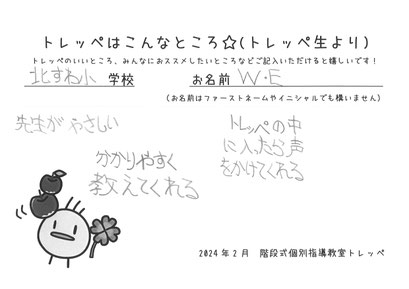 トレッペはこんなところ☆(トレッペ生より)
トレッペのいいところ、みんなにおススメしたいところなどご記入いただけると嬉しいです!
北すね小 学校 お名前 W・E
(お名前はファーストネームやイニシャルでも構いません)
先生がやさしい
分かりやすく
教えてくれる
トレッペの中
に入ったら声
をかけてくれる
2024年2月 階段式個別指導教室トレッペ